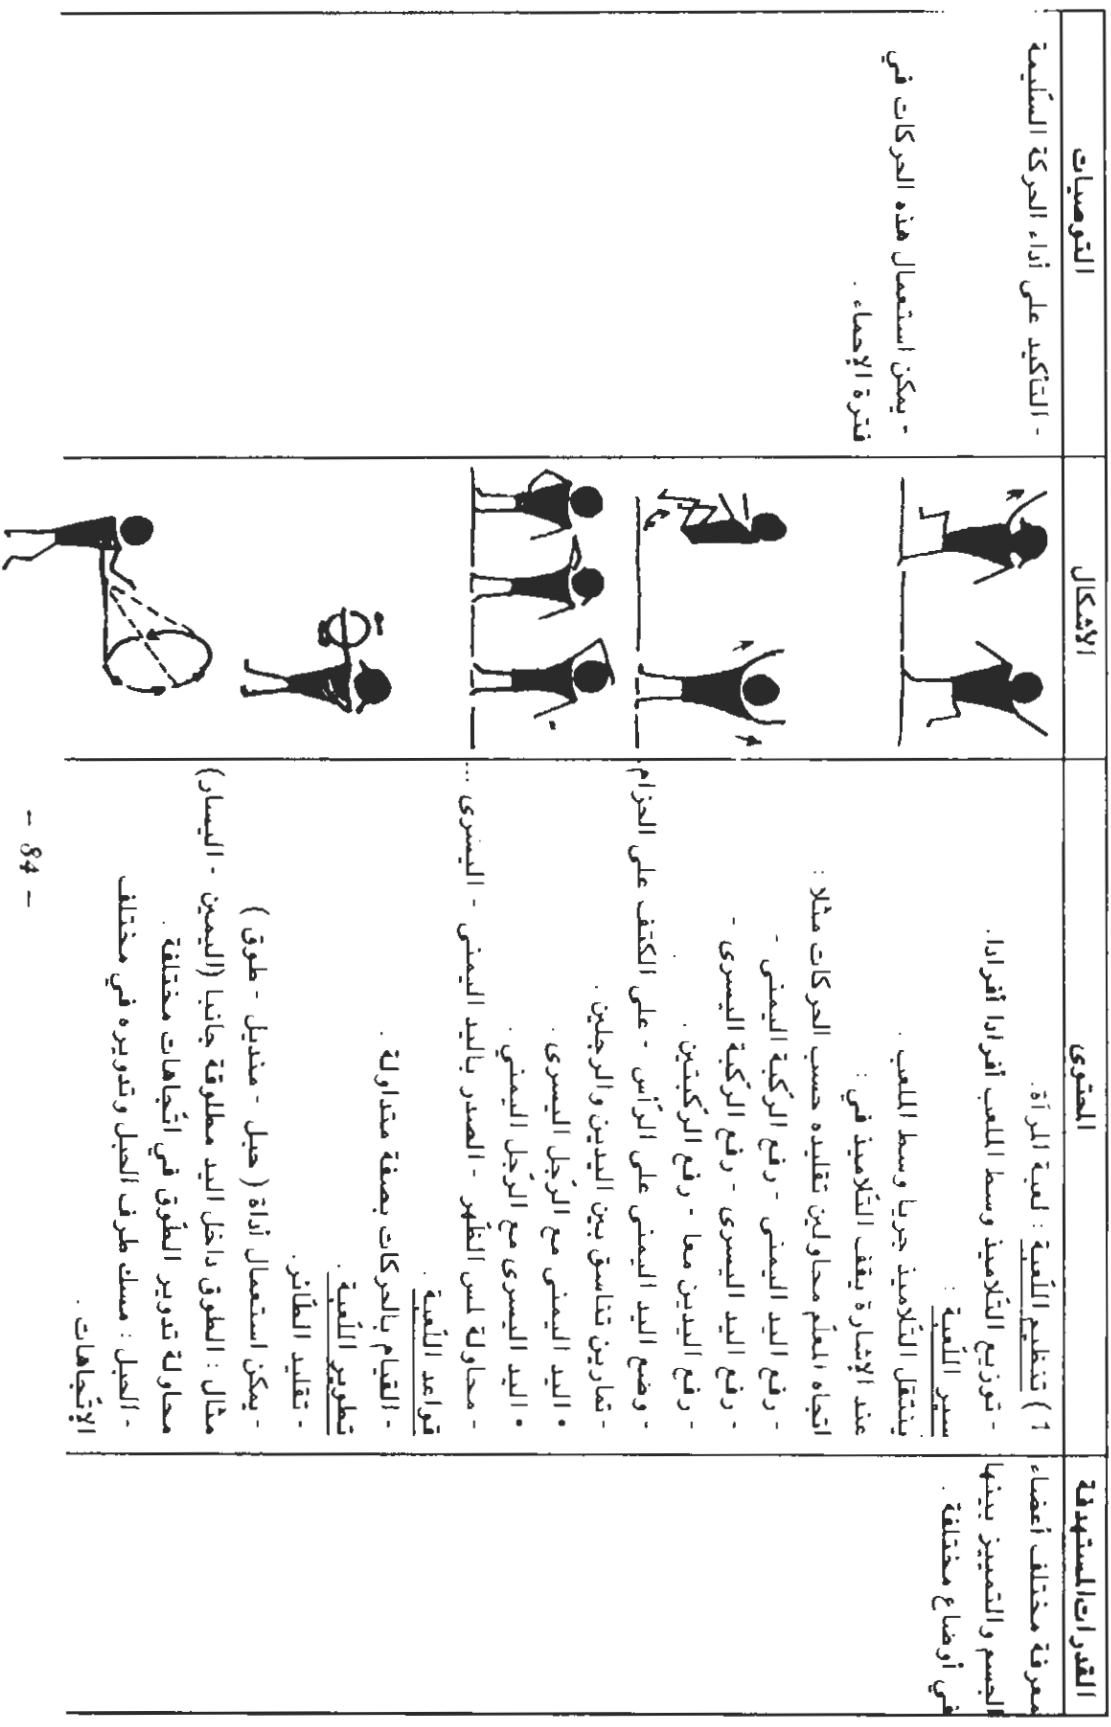 القدرات المستهدفة
معرفة مختلف أعضاء
الجسم والتمييز بينها
في أوضاع مختلفة .
المحتوى
1 ) تنظيم اللّعبة : لعبة المرآة.
- توزيع التّلاميذ وسط الملعب أفرادا أفرادا.
سير اللّعبة :
ينتقل التّلاميذ جريا وسط الملعب .
عند الإشارة يقف التّلاميذ في :
اتجاه المعلّم محاولين تقليده حسب الحركات مثلا :
- رفع اليد اليمنى - رفع الرّكبة اليمنى -
- رفع اليد اليسرى - رفع الرّكبة اليسرى -
- رفع اليدين معا - رفع الرّكبتين .
- وضع اليد اليمنى على الرّأس - على الكتف على الحزام
- تمارين تناسق بين اليدين والرجلين .
• اليد اليمنى مع الرّجل اليسرى .
• اليد اليسرى مع الرّجل اليمنى .
- محاولة لمس الظّهر - الصدر باليد اليمنى - اليسرى ...
قواعد اللّعبة .
- القيام بالحركات بصفة متداولة .
تطوير اللّعبة .
- تقليد الطّائر .
- يمكن استعمال أداة ( حبل - منديل - طوق )
مثال : الطوق داخل اليد مطلوقة جانبا (اليمين - اليسار)
محاولة تدوير الطّوق في اتّجاهات مختلفة .
- الحبل : مسك طرف الحبل وتدويره في مختلف
الإتّجاهات .
الاشكال
التوصيات
- التأكيد على أداء الحركة السّليمة
- يمكن استعمال هذه الحركات في
فترة الإحماء .
- 84 -